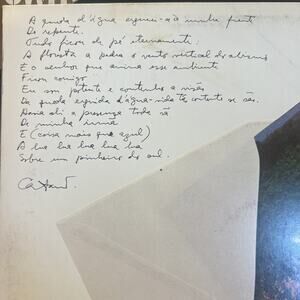 A queda d'água ergueu-se à minha frente
De repente.
Tudo ficou de pé eternamente.
A floresta a pedra o vento vertical do abismo
E o senhor que anima esse ambiente
Ficou comigo.
Eu sou potente e contenho a visão
Da queda erguida d'água-vida
Daria ali a presença toda sã
De minha irmã
E (coisa mais que azul)
A lua lua lua lua lua
Sobre um pinheiro do sul.
Caetano.